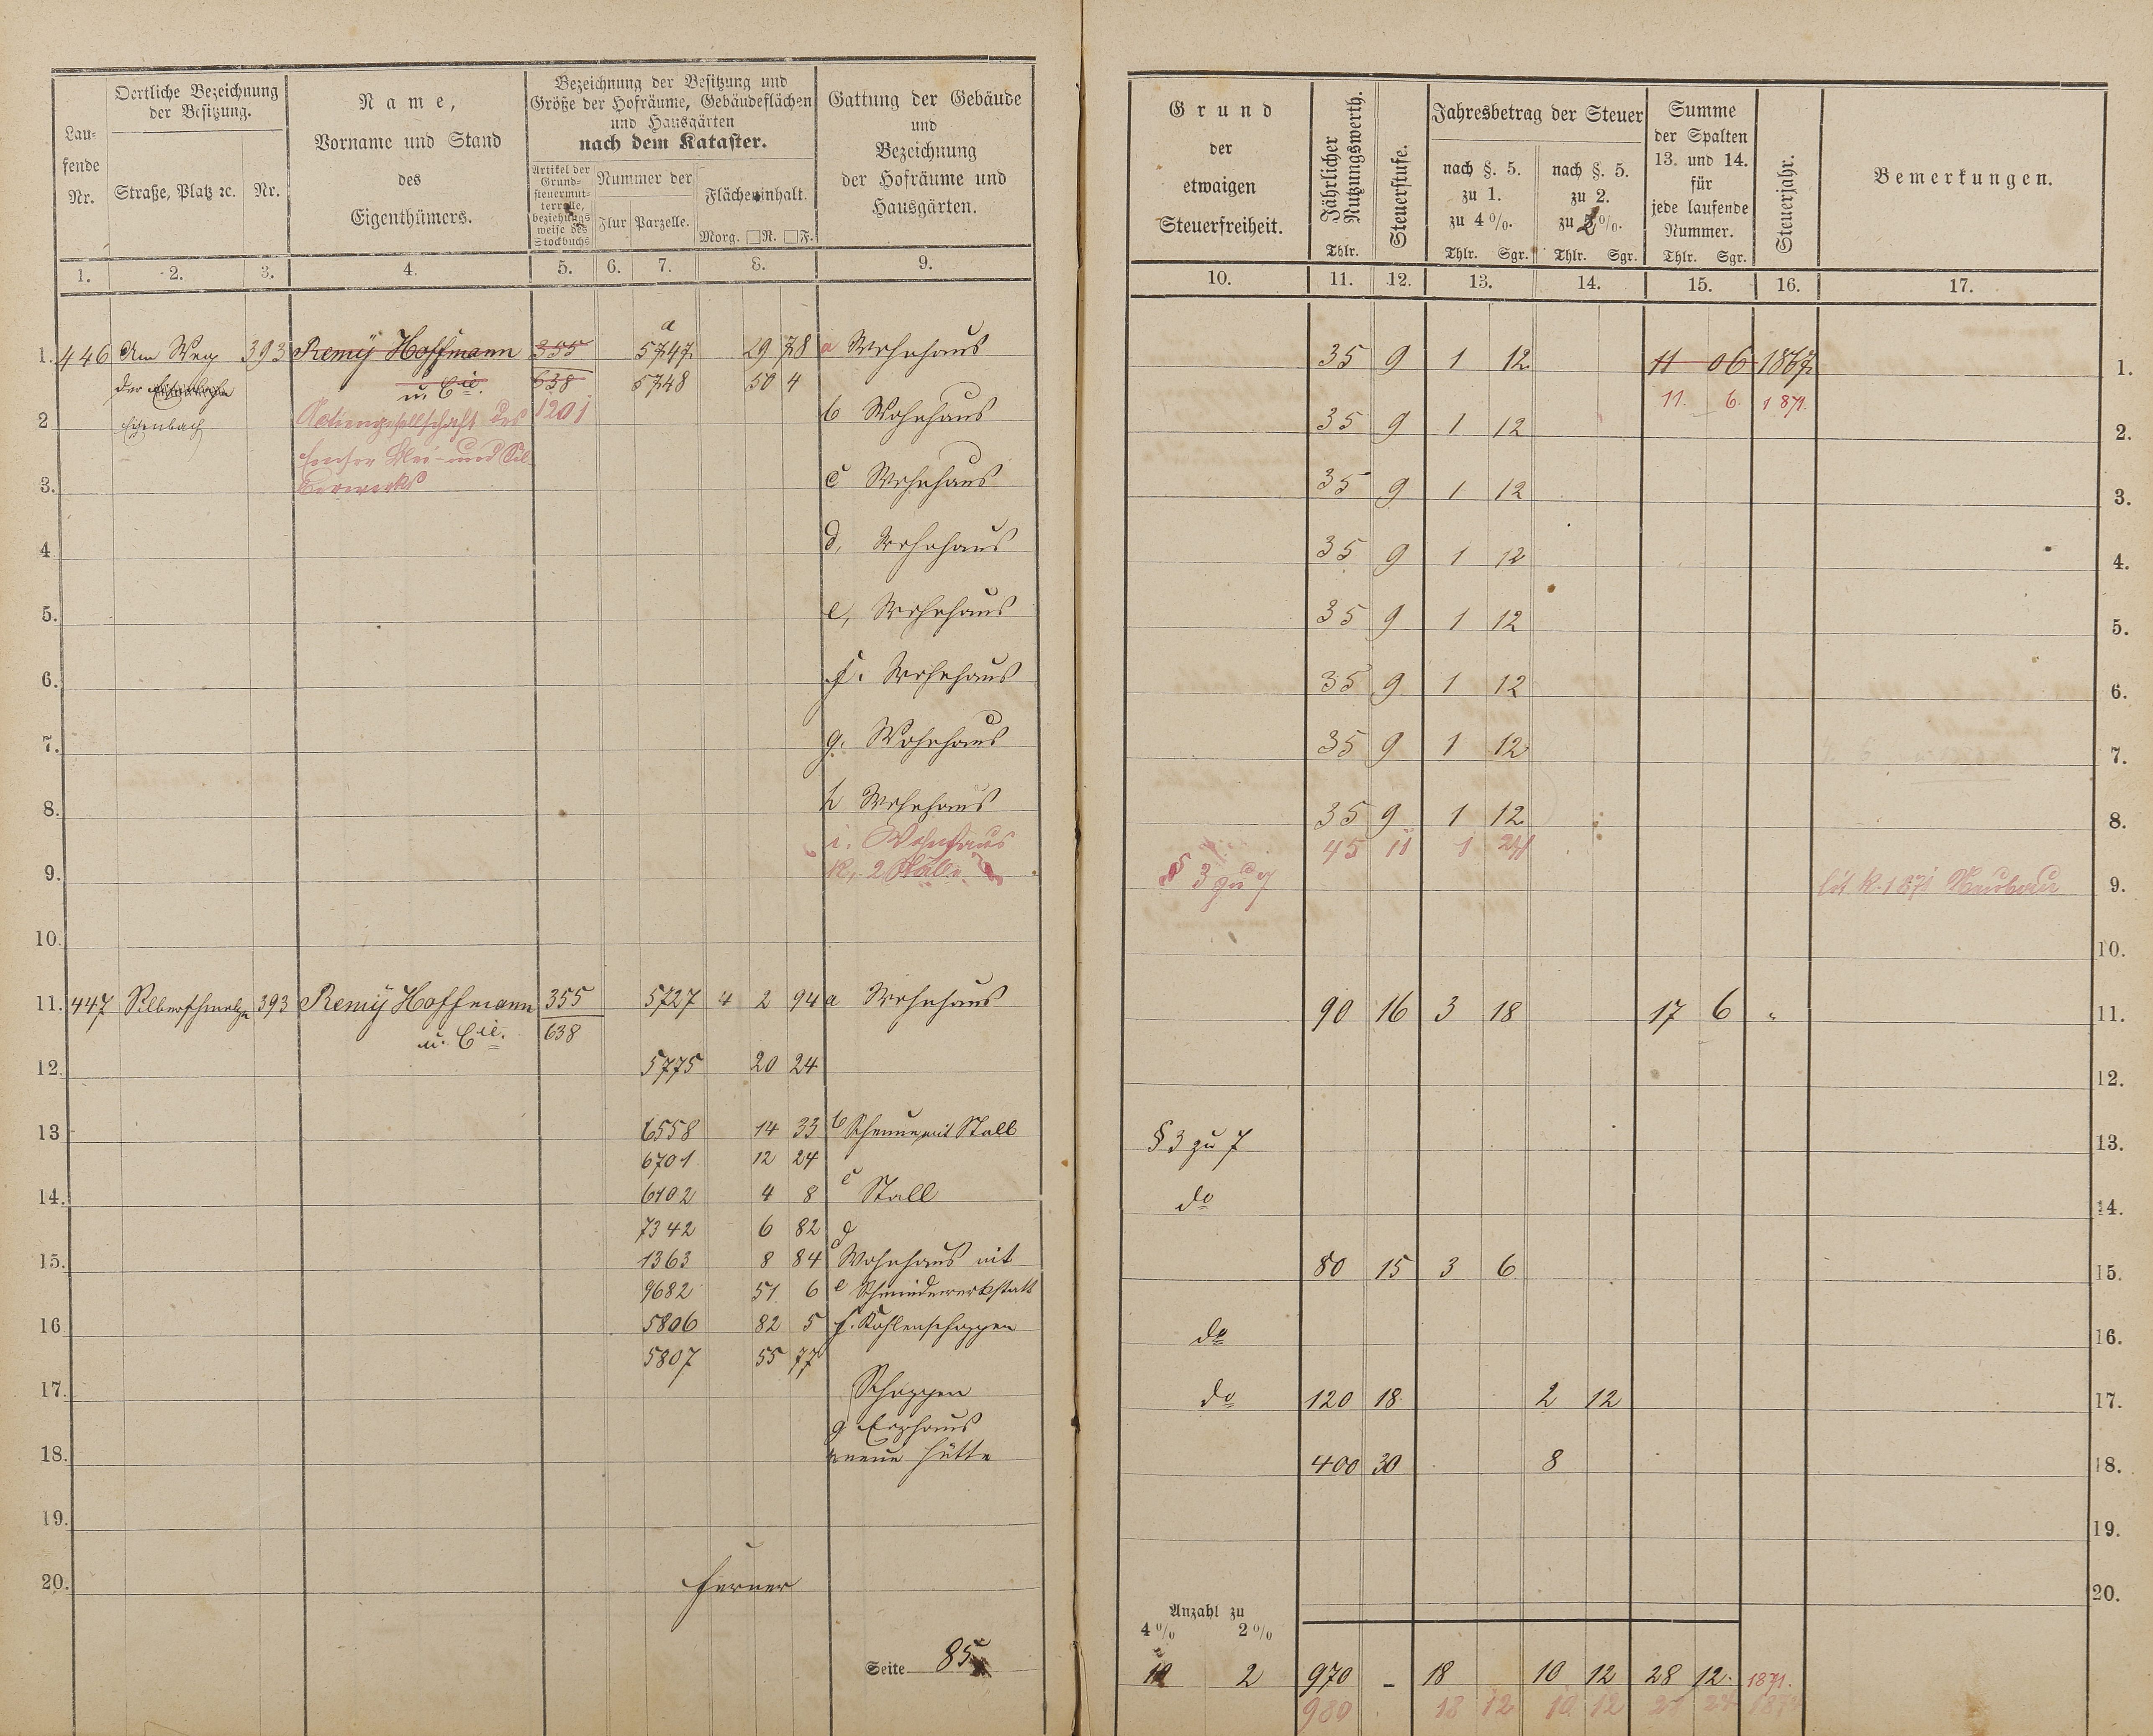 Lau-
fende
Nr.
Oertliche Bezeichnung
der Besitzung.
Straße, Platz ꝛc.
Nr.
Name,
Vorname und Stand
des
Eigenthümers.
Bezeichnung der Besitzung und
Größe der Hofräume, Gebäudeflächen
und Hausgärten
nach dem Kataster.
Artikel der
Grund-
steuermut-
terrolle,
beziehungs
weise des
Stockbuchs
Nummer der
Flur Parzelle.
Flächeninhalt.
Morg. □R. □F.
Gattung der Gebäude
und
Bezeichnung
der Hofräume und
Hausgärten.
Grund
der
etwaigen
Steuerfreiheit.
Jährlicher
Nutzungswerth.
Thlr.
Steuerstufe.
Jahresbetrag der Steuer
nach §. 5.
zu 1.
zu 4 %.
Thlr. Sgr.
nach §. 5.
zu 2.
zu 2 %.
Thlr. Sgr.
Summe
der Spalten
13. und 14.
für
jede laufende
Nummer.
Thlr. Sgr.
Steuerjahr.
Bemerkungen.
1. 2. 3. 4. 5. 6. 7. 8. 9. 10. 11. 12. 13. 14. 15. 16. 17.
1. 446 Am Weg 393 Remÿ Hoffmann 355 a 5747 29 78 a Wohnhaus 35 9 1 12 11 06 1867 1.
der Eisenbach u. Cie. 638 5748 50 4
Actiengesellschaft des 1201 11. 6. 1871.
2 b Wohnhaus 35 9 1 12 2.
Emser Blei- und Sil-
berwerks
3. c Wohnhaus 35 9 1 12 3.
4 d, Wohnhaus 35 9 1 12 4.
5. e, Wohnhaus 35 9 1 12 5.
6. f. Wohnhaus 35 9 1 12 6.
7. g. Wohnhaus 35 9 1 12 7.
8. h Wohnhaus 35 9 1 12 8.
i. Wohnhaus 45 11 1 24
9. k, 2 Ställe § 3 zu 7 lit. k. 1871 Neubau 9.
10. 10.
11. 447 Silberschmelze 393 Remÿ Hoffmann 355 5727 4 2 94 a Wohnhaus 90 16 3 18 17 6 " 11.
u. Cie. 638
12. 5775 20 24 12.
13 6558 14 33 b Scheune mit Stall § 3 zu 7 13.
6701 12 24
14. 6702 4 8 c Stall do 14.
7342 6 82 d
15. 1363 8 84 Wohnhaus mit 80 15 3 6 15.
9682 51 6 e Schmiedewerkstatt
16 5806 82 5 f. Kohlenschoppen do 16.
5807 55 77
17. Schoppen do 120 18 2 12 17.
g Erzhaus
18. neue Hütte 400 30 8 18.
19. 19.
20. ferner 20.
Seite 85
Anzahl zu
4 % 2 %
2 970 - 18 10 12 28 12. 1871.
980 18 12 10 12